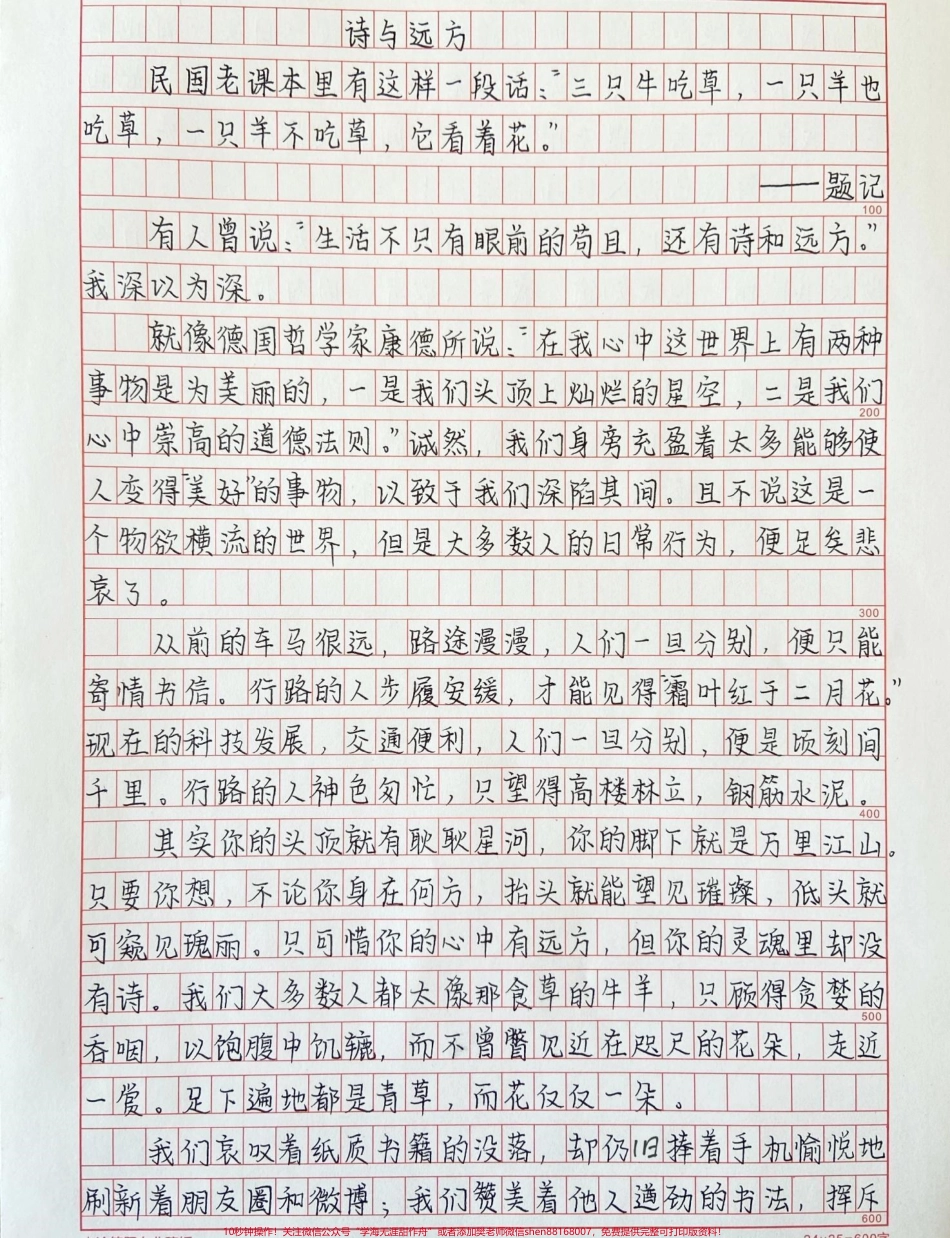 诗与远方
民国老课本里有这样一段话：“三只牛吃草，一只羊也
吃草，一只羊不吃草，它看着花。”
——题记
100
有人曾说：“生活不只有眼前的苟且，还有诗和远方。”
我深以为深。
就像德国哲学家康德所说：“在我心中这世界上有两种
事物是为美丽的，一是我们头顶上灿烂的星空，二是我们
200
心中崇高的道德法则。”诚然，我们身旁充盈着太多能够使
人变得“美好”的事物，以致于我们深陷其间。且不说这是一
个物欲横流的世界，但是大多数人的日常行为，便足矣悲
哀了。
300
从前的车马很远，路途漫漫，人们一旦分别，便只能
寄情书信。行路的人步履安缓，才能见得“霜叶红于二月花。”
现在的科技发展，交通便利，人们一旦分别，便是顷刻间
千里。行路的人神色匆忙，只望得高楼林立，钢筋水泥。
400
其实你的头顶就有耿耿星河，你的脚下就是万里江山。
只要你想，不论你身在何方，抬头就能望见璀璨，低头就
可窥见瑰丽。只可惜你的心中有远方，但你的灵魂里却没
有诗。我们大多数人都太像那食草的牛羊，只顾得贪婪的
500
吞咽，以饱腹中饥辘，而不曾瞥见近在咫尺的花朵，走近
一赏。足下遍地都是青草，而花仅仅一朵。
我们哀叹着纸质书籍的没落，却仍旧捧着手机愉悦地
刷新着朋友圈和微博；我们赞美着他人遒劲的书法，挥斥
600
10秒钟操作！关注微信公众号“学海无涯甜作舟”或者添加吴老师微信shen88168007，免费提供完整可打印版资料！
24×25=600字